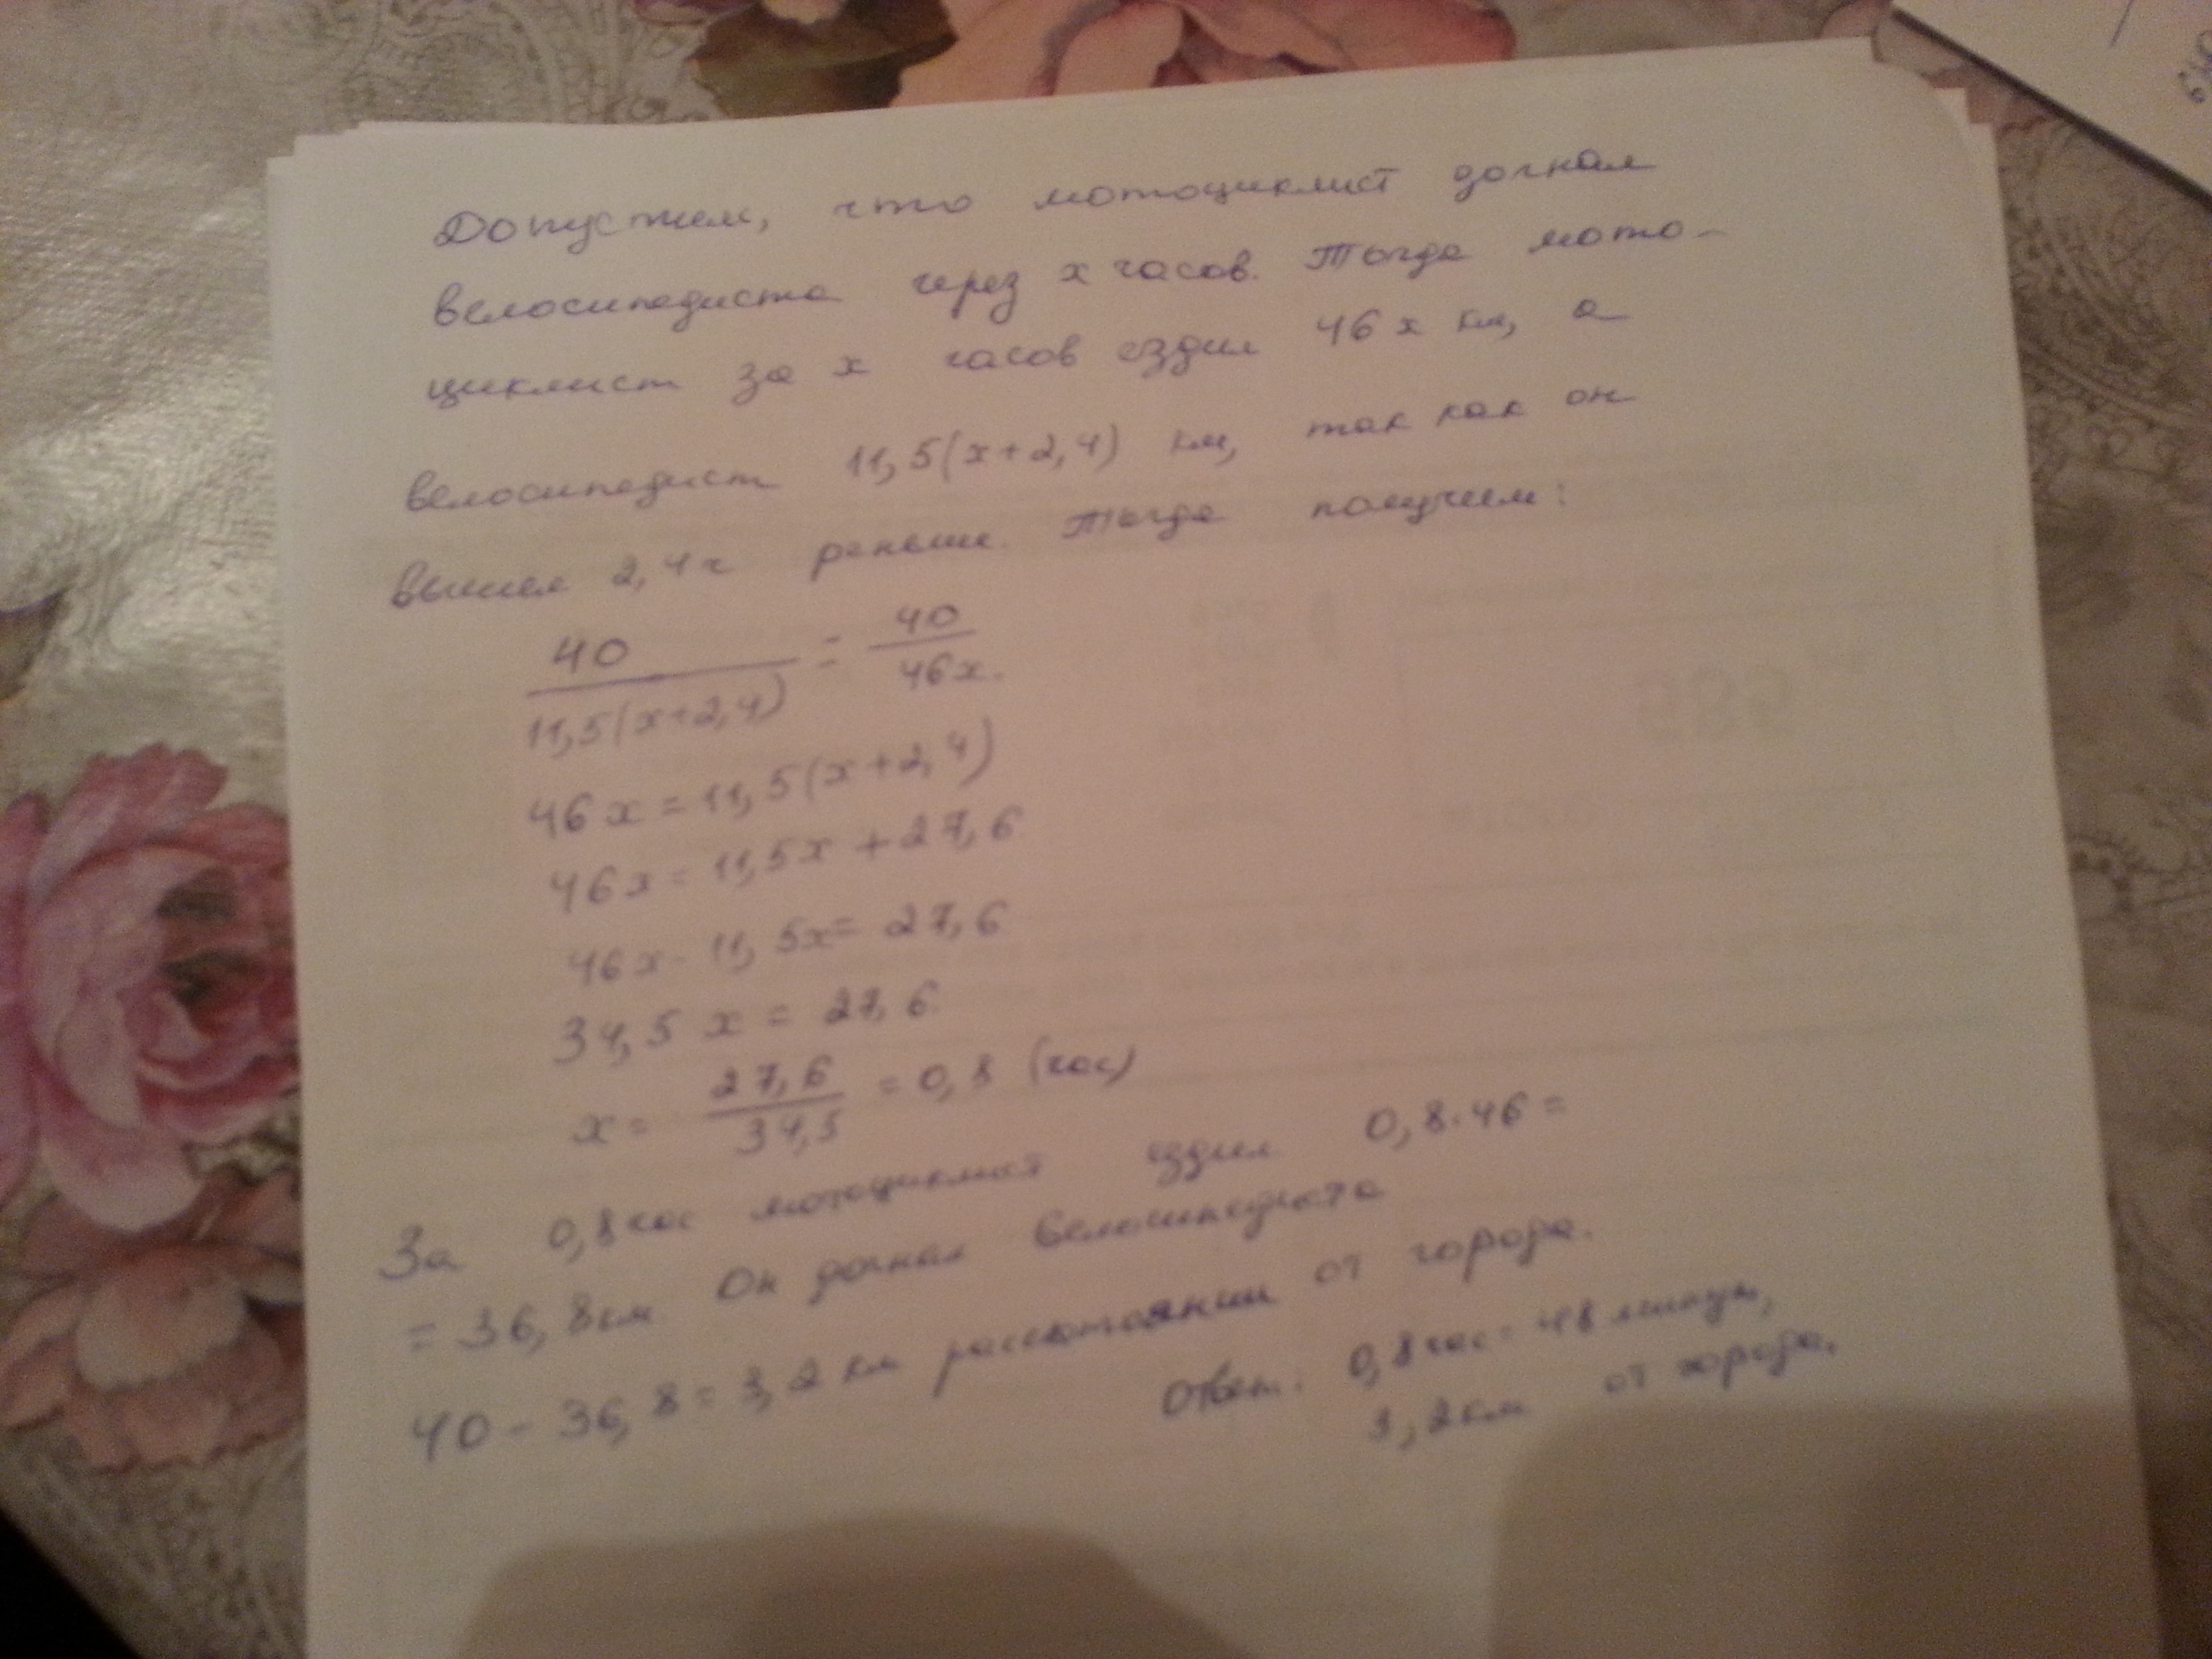 Допустим, что мотоциклист догнал
велосипедиста через x часов. Тогда мото-
циклист за x часов ездил 46x км, а
велосипедист 11,5(x+2,4) км, так как он
вышел 2,4ч раньше. Тогда получим:
40/11,5(x+2,4) = 40/46x.
46x=11,5(x+2,4)
46x=11,5x+27,6
46x-11,5x=27,6
34,5x=27,6
x= 27,6/34,5 =0,8 (час)
За 0,8 час мотоциклист ездил 0,8·46=
=36,8км. Он догнал велосипедиста
40-36,8=3,2 км расстоянии от города.
Ответ: 0,8 час=48 минут,
3,2км от города.